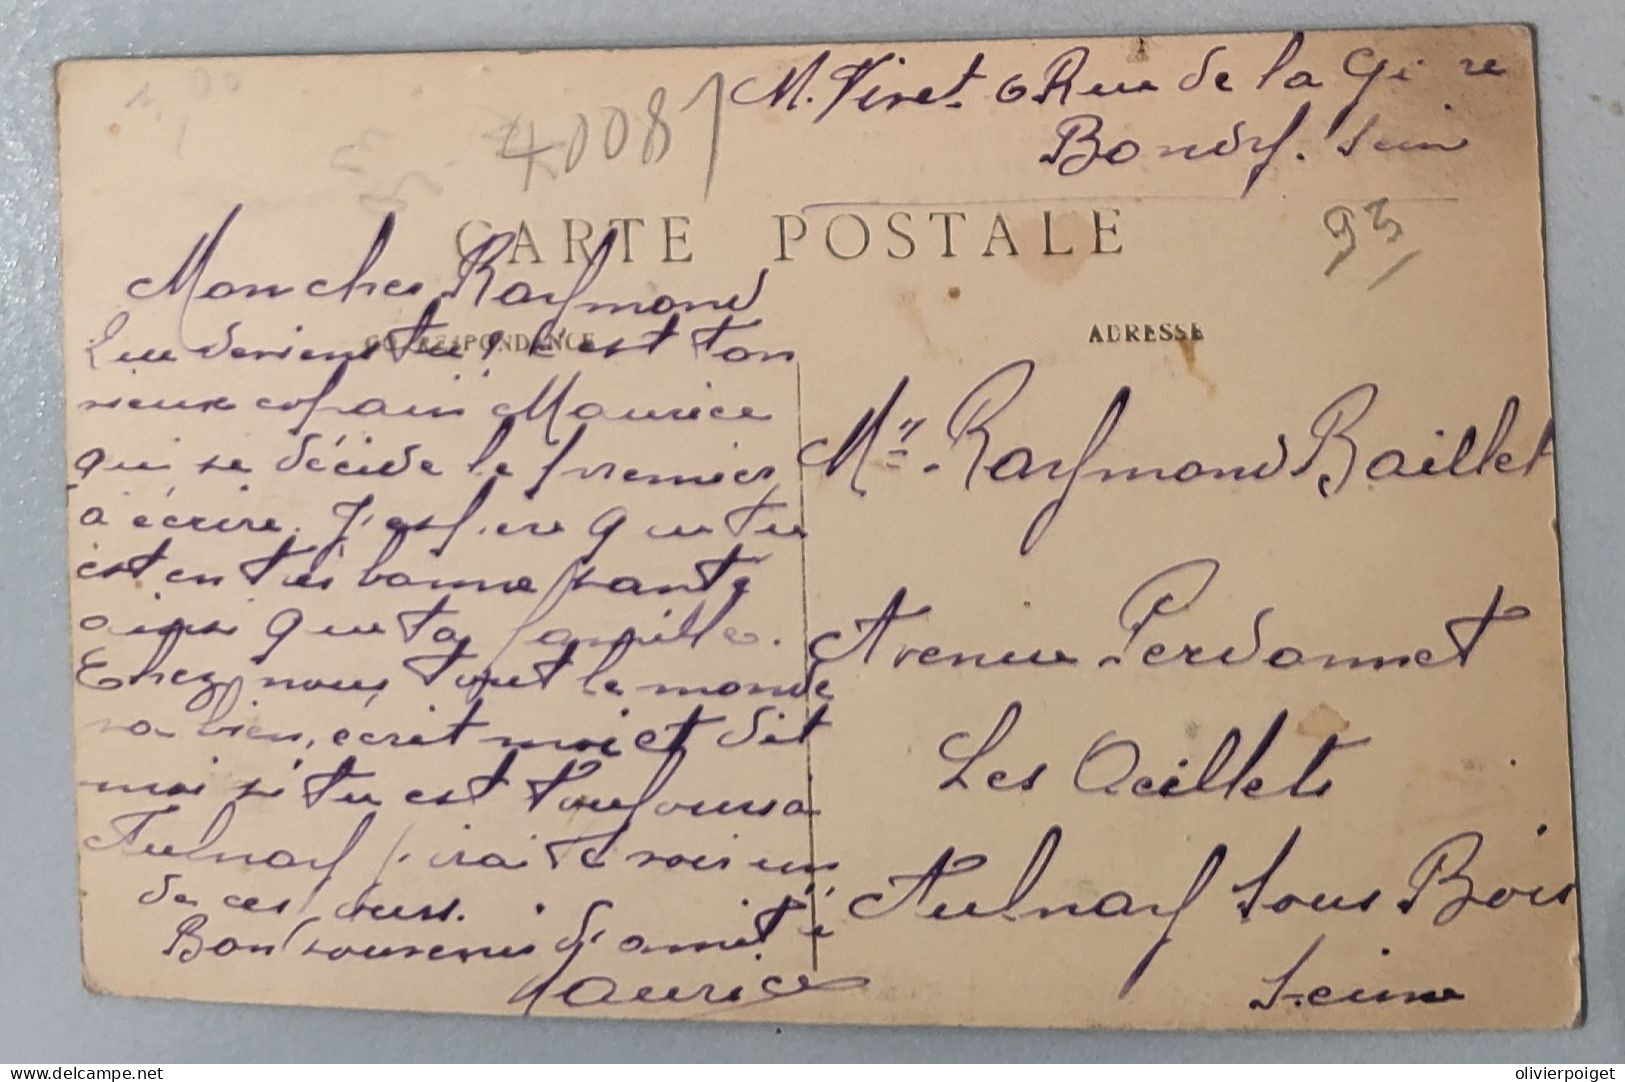 M. Viret. 6 Rue de la
Bondy. Sein
40087
CARTE POSTALE
93
Mon cher Raymond
CORRESPONDANCE
ADRESSE
Que deviens tu, c'est ton
vieux copain Maurice
qui se décide le premier
à écrire. J'espère que tu
est en très bonne santé
ainsi que ta famille.
Chez nous tout le monde
va bien, écrit moi et dit
moi si tu est toujours a
Aulnay j'irai te voir un
de ces jours.
Bon souvenir d'amitié
Maurice
Mr. Raymond Baillet
Avenue Perdonnet
Les Oeillets
Aulnay Sous Bois
Seine
Delcampe.net
olivierpoiget